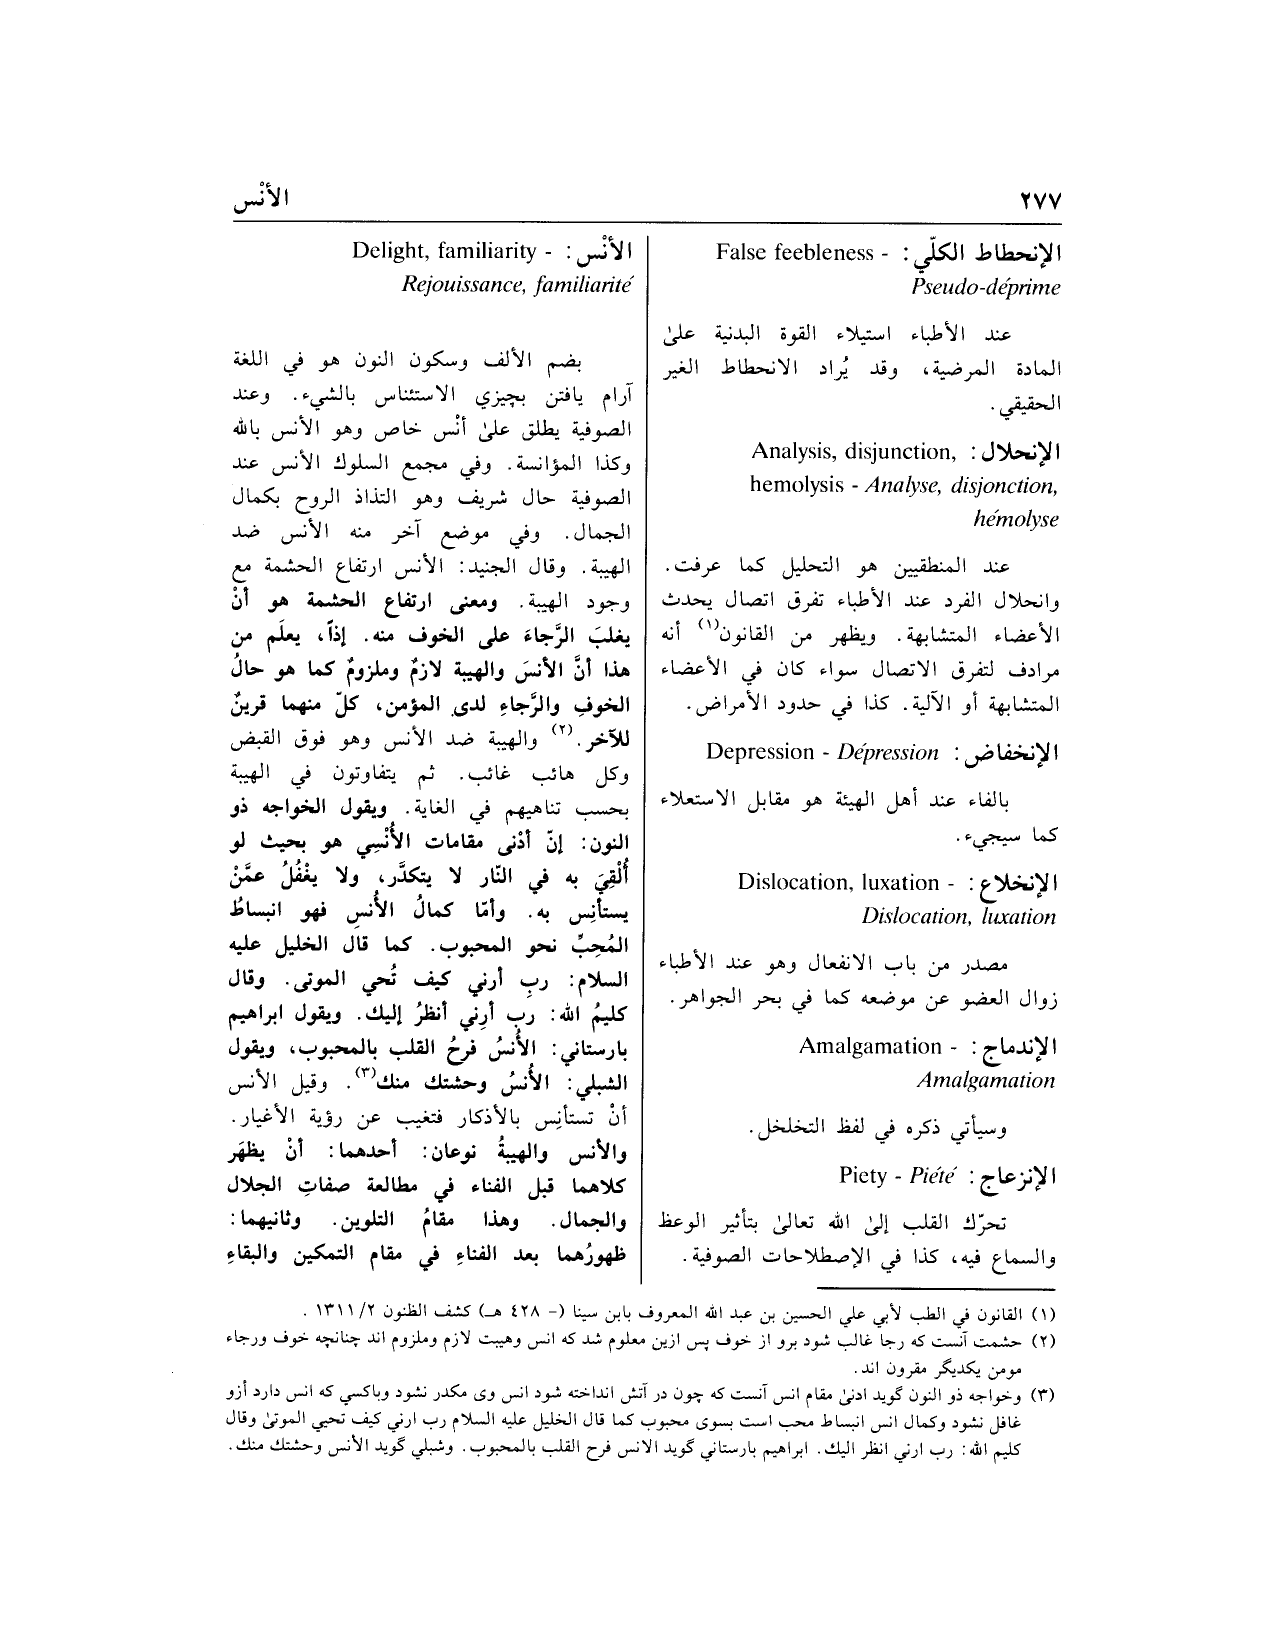 ٢٧٧
الأنْس
الإنحطاط الكلّي : False feebleness -
Pseudo-déprime
عند الأطباء استيلاء القوة البدنية علىٰ
المادة المرضية، وقد يُراد الانحطاط الغير
الحقيقي.
الإنحلال : Analysis, disjunction,
hemolysis - Analyse, disjonction,
hémolyse
عند المنطقيين هو التحليل كما عرفت.
وانحلال الفرد عند الأطباء تفرق اتصال يحدث
الأعضاء المتشابهة. ويظهر من القانون(١) أنه
مرادف لتفرق الاتصال سواء كان في الأعضاء
المتشابهة أو الآلية. كذا في حدود الأمراض.
الإنخفاض : Depression - Dépression
بالفاء عند أهل الهيئة هو مقابل الاستعلاء
كما سيجيء.
الإنخلاع : Dislocation, luxation -
Dislocation, luxation
مصدر من باب الانفعال وهو عند الأطباء
زوال العضو عن موضعه كما في بحر الجواهر.
الإندماج : Amalgamation -
Amalgamation
وسيأتي ذكره في لفظ التخلخل.
الإنزعاج : Piety - Piété
تحرّك القلب إلىٰ الله تعالىٰ بتأثير الوعظ
والسماع فيه، كذا في الإصطلاحات الصوفية.
الأنْس : Delight, familiarity -
Rejouissance, familiarité
بضم الألف وسكون النون هو في اللغة
آرام يافتن بچيزي الاستئناس بالشيء. وعند
الصوفية يطلق علىٰ أنْس خاص وهو الأنس بالله
وكذا المؤانسة. وفي مجمع السلوك الأنس عند
الصوفية حال شريف وهو التذاذ الروح بكمال
الجمال. وفي موضع آخر منه الأنس ضد
الهيبة. وقال الجنيد: الأنس ارتفاع الحشمة مع
وجود الهيبة. ومعنى ارتفاع الحشمة هو أنْ
يغلبَ الرَّجاءَ على الخوف منه. إذاً، يعلَم من
هذا أنَّ الأنسَ والهيبة لازمٌ وملزومٌ كما هو حالُ
الخوفِ والرَّجاءِ لدى المؤمن، كلّ منهما قرينٌ
للآخر.(٢) والهيبة ضد الأنس وهو فوق القبض
وكل هائب غائب. ثم يتفاوتون في الهيبة
بحسب تناهيهم في الغاية. ويقول الخواجه ذو
النون: إنّ أدْنى مقامات الأُنْسِي هو بحيث لو
أُلْقِيَ به في النّار لا يتكدَّر، ولا يغْفُلُ عمَّنْ
يستأنِس به. وأمّا كمالُ الأُنسِ فهو انبساطُ
المُحِبِّ نحو المحبوب. كما قال الخليل عليه
السلام: ربِ أرني كيف تُحي الموتى. وقال
كليمُ الله: رَبِ أرِني أنظرُ إليك. ويقول ابراهيم
بارستاني: الأُنسُ فرحُ القلب بالمحبوب، ويقول
الشبلي: الأُنسُ وحشتك منك(٣). وقيل الأنس
أنْ تستأنِس بالأذكار فتغيب عن رؤية الأغيار.
والأنس والهيبةُ نوعان: أحدهما: أنْ يظهَر
كلاهما قبل الفناء في مطالعة صفاتِ الجلال
والجمال. وهذا مقامُ التلوين. وثانيهما:
ظهورُهما بعد الفناءِ في مقام التمكين والبقاءِ
(١) القانون في الطب لأبي علي الحسين بن عبد الله المعروف بابن سينا (- ٤٢٨ هـ) كشف الظنون ٢/ ١٣١١ .
(٢) حشمت آنست كه رجا غالب شود برو از خوف پس ازين معلوم شد كه انس وهيبت لازم وملزوم اند چنانچه خوف ورجاء
مومن يكديگر مقرون اند.
(٣) وخواجه ذو النون گويد ادنىٰ مقام انس آنست كه چون در آتش انداخته شود انس وى مكدر نشود وباكسي كه انس دارد أزو
غافل نشود وكمال انس انبساط محب است بسوى محبوب كما قال الخليل عليه السلام رب ارني كيف تحيي الموتىٰ وقال
كليم الله: رب ارني انظر اليك. ابراهيم بارستاني گويد الانس فرح القلب بالمحبوب. وشبلي گويد الأنس وحشتك منك.